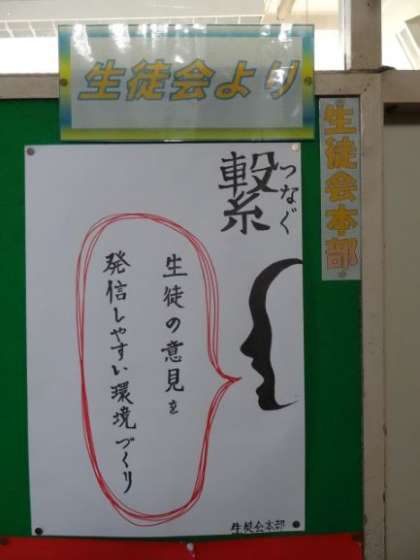 生徒会より
生徒会本部
繋
つなぐ
生徒の意見を
発信しやすい環境づくり
生徒会本部